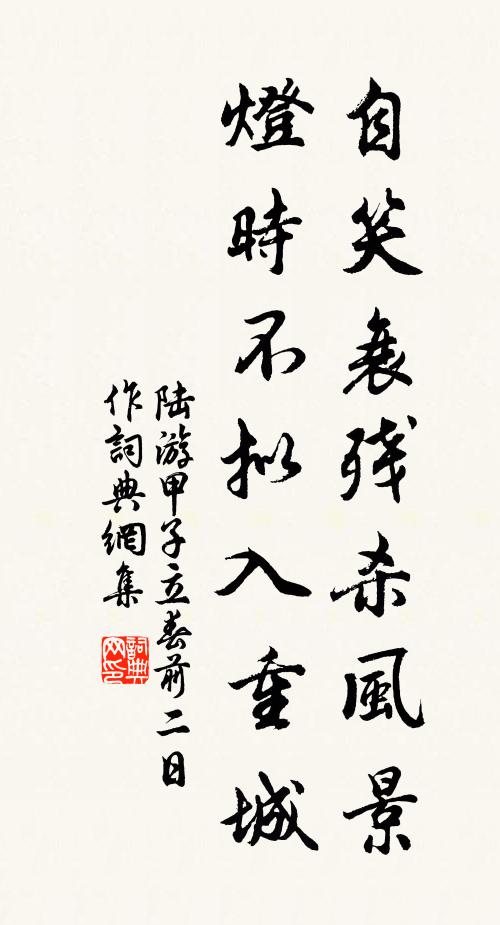 自笑衰残杀風景
燈時不拟入重城
陆游甲子立春前二日
作詞典網集
詞典
网印